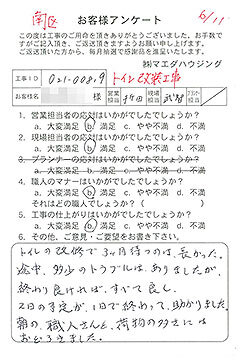 南区
6/11
お客様アンケート
この度は工事のご用命を頂きありがとうございました。お手数で
すがご記入頂き、ご返送頂きますようお願い申し上げます。
ご返送頂いた方から、毎月抽選で感謝品を進呈いたします。
㈱マエダハウジング
工事ID 021-008.9 トイレ改装工事
様 営業担当 現場担当 武智 プランナー担当
1. 営業担当者の応対はいかがでしたでしょうか？
a. 大変満足 b. 満足 c. やや不満 d. 不満
2. 現場担当者の応対はいかがでしたでしょうか？
a. 大変満足 b. 満足 c. やや不満 d. 不満
3. プランナーの応対はいかがでしたでしょうか？
a. 大変満足 b. 満足 c. やや不満 d. 不満
4. 職人のマナーはいかがでしたでしょうか？
a. 大変満足 b. 満足 c. やや不満 d. 不満
それはどの職人でしょうか？（ ）
5. 工事の仕上がりはいかがでしたでしょうか？
a. 大変満足 b. 満足 c. やや不満 d. 不満
6. その他、ご意見・ご要望をお書き下さい。
トイレの改修で3ヶ月待つのは長かった。
途中、多少のトラブルは、ありましたが、
終わり良ければ、すべて良し、
2日の予定が、1日で終わって、助かりました。
朝の、職人さんと、荷物の多さには
おどろきました。